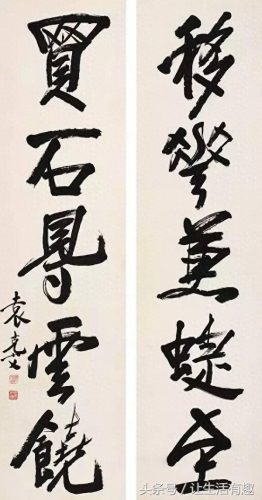 移華兼蜨至
買石㝵雲饒
袁克文
头条号/让生活有趣